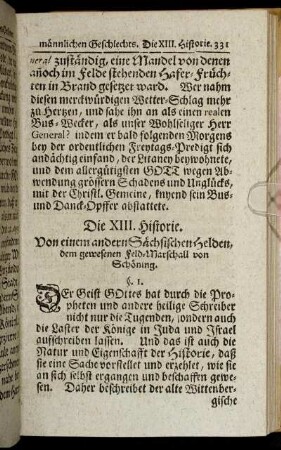 männlichen Geschlechts. Die XIII. Historie. 331
neral zuständig, eine Mandel von denen
añoch im Felde stehenden Hafer-Früch-
ten in Brand gesetzet ward. Wer nahm
diesen merckwürdigen Wetter-Schlag mehr
zu Hertzen, und sahe ihn an als einen realen
Bus-Wecker, als unser Wohlseliger Herr
General? indem er bald folgenden Morgens
bey der ordentlichen Freytags-Predigt sich
andächtig einfand, der Litaney beywohnete,
und dem allergütigsten GOTT wegen Ab-
wendung grössern Schadens und Unglücks,
mit der Christl. Gemeine, knyend sein Bus-
und Danck-Opffer abstattete.
Die XIII. Historie.
Von einem andern Sächsischen Helden,
dem gewesenen Feld-Marschall von
Schöning.
§. 1.
DEr Geist GOttes hat durch die Pro-
pheten und andere heilige Schreiber
nicht nur die Tugenden, sondern auch
die Laster der Könige in Juda und Israel
aufschreiben lassen. Und das ist auch die
Natur und Eigenschafft der Historie, daß
sie eine Sache vorstellet und erzehlet, wie sie
an sich selbst ergangen und beschaffen gewe-
sen. Daher beschreibet der alte Wittenber-
gische